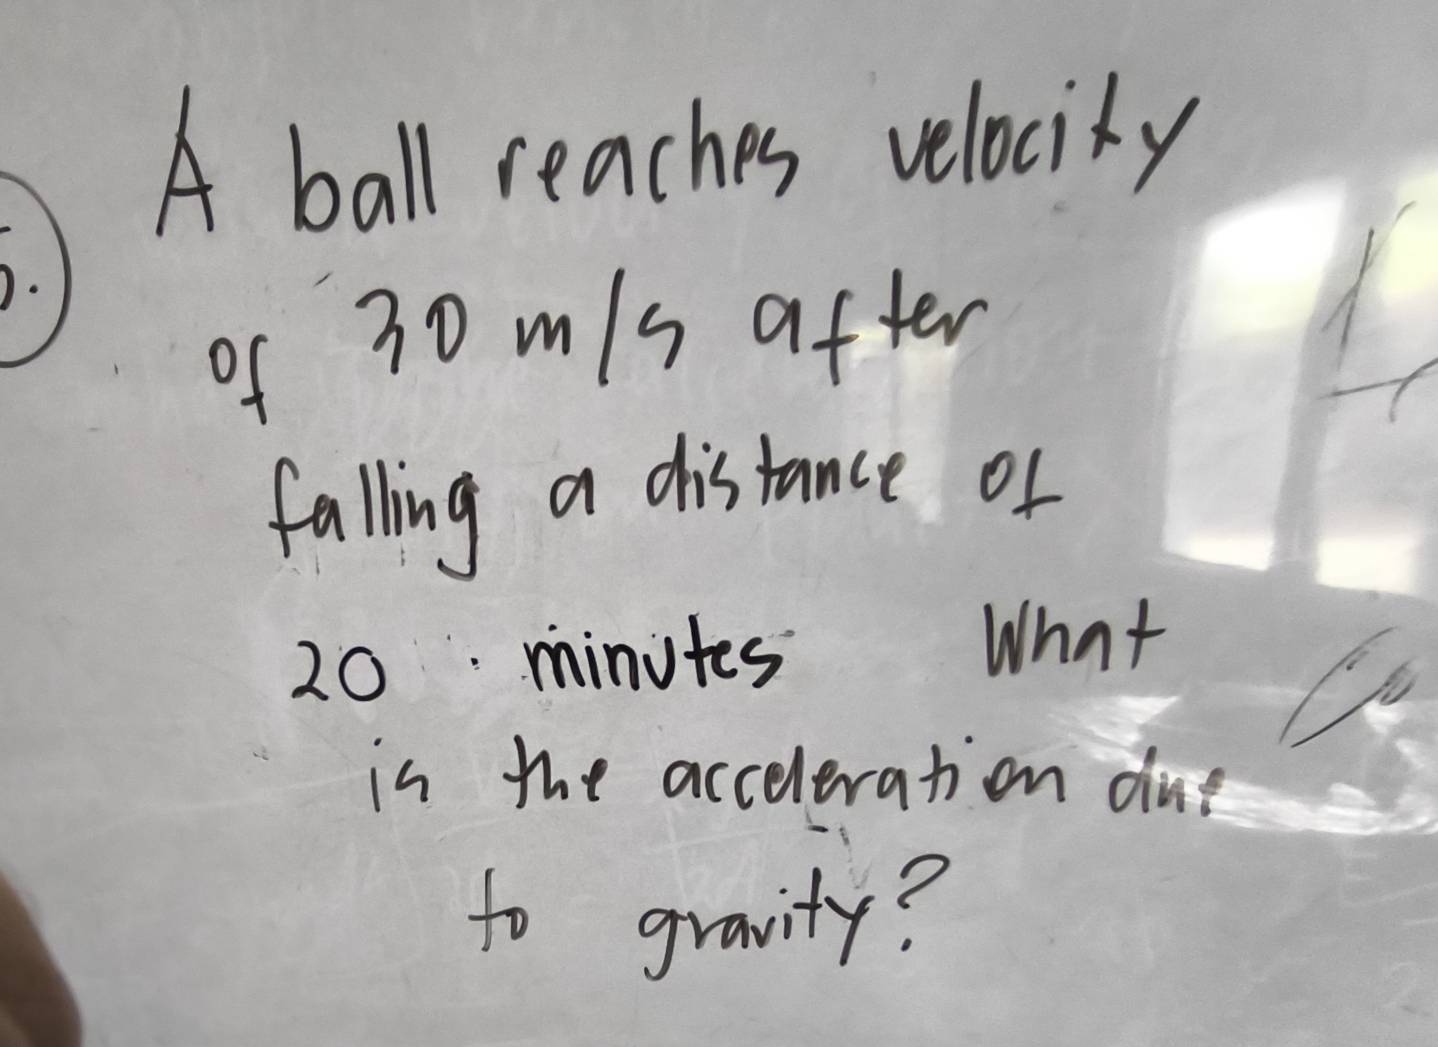 A ball reaches velocity
of 30 m/s after
falling a distance of
20 minutes What
is the acceleration due
to gravity?